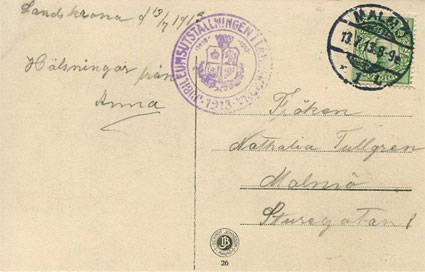 Landskrona d 13/7 1913
Hälsningar från
Anna
JUBILEUMSUTSTÄLLNINGEN I LANDSKRONA
1413
1913
MALMÖ
13.7.13.8-9
Fröken
Nathalia Tullgren
Malmö
Sturegatan 1
26